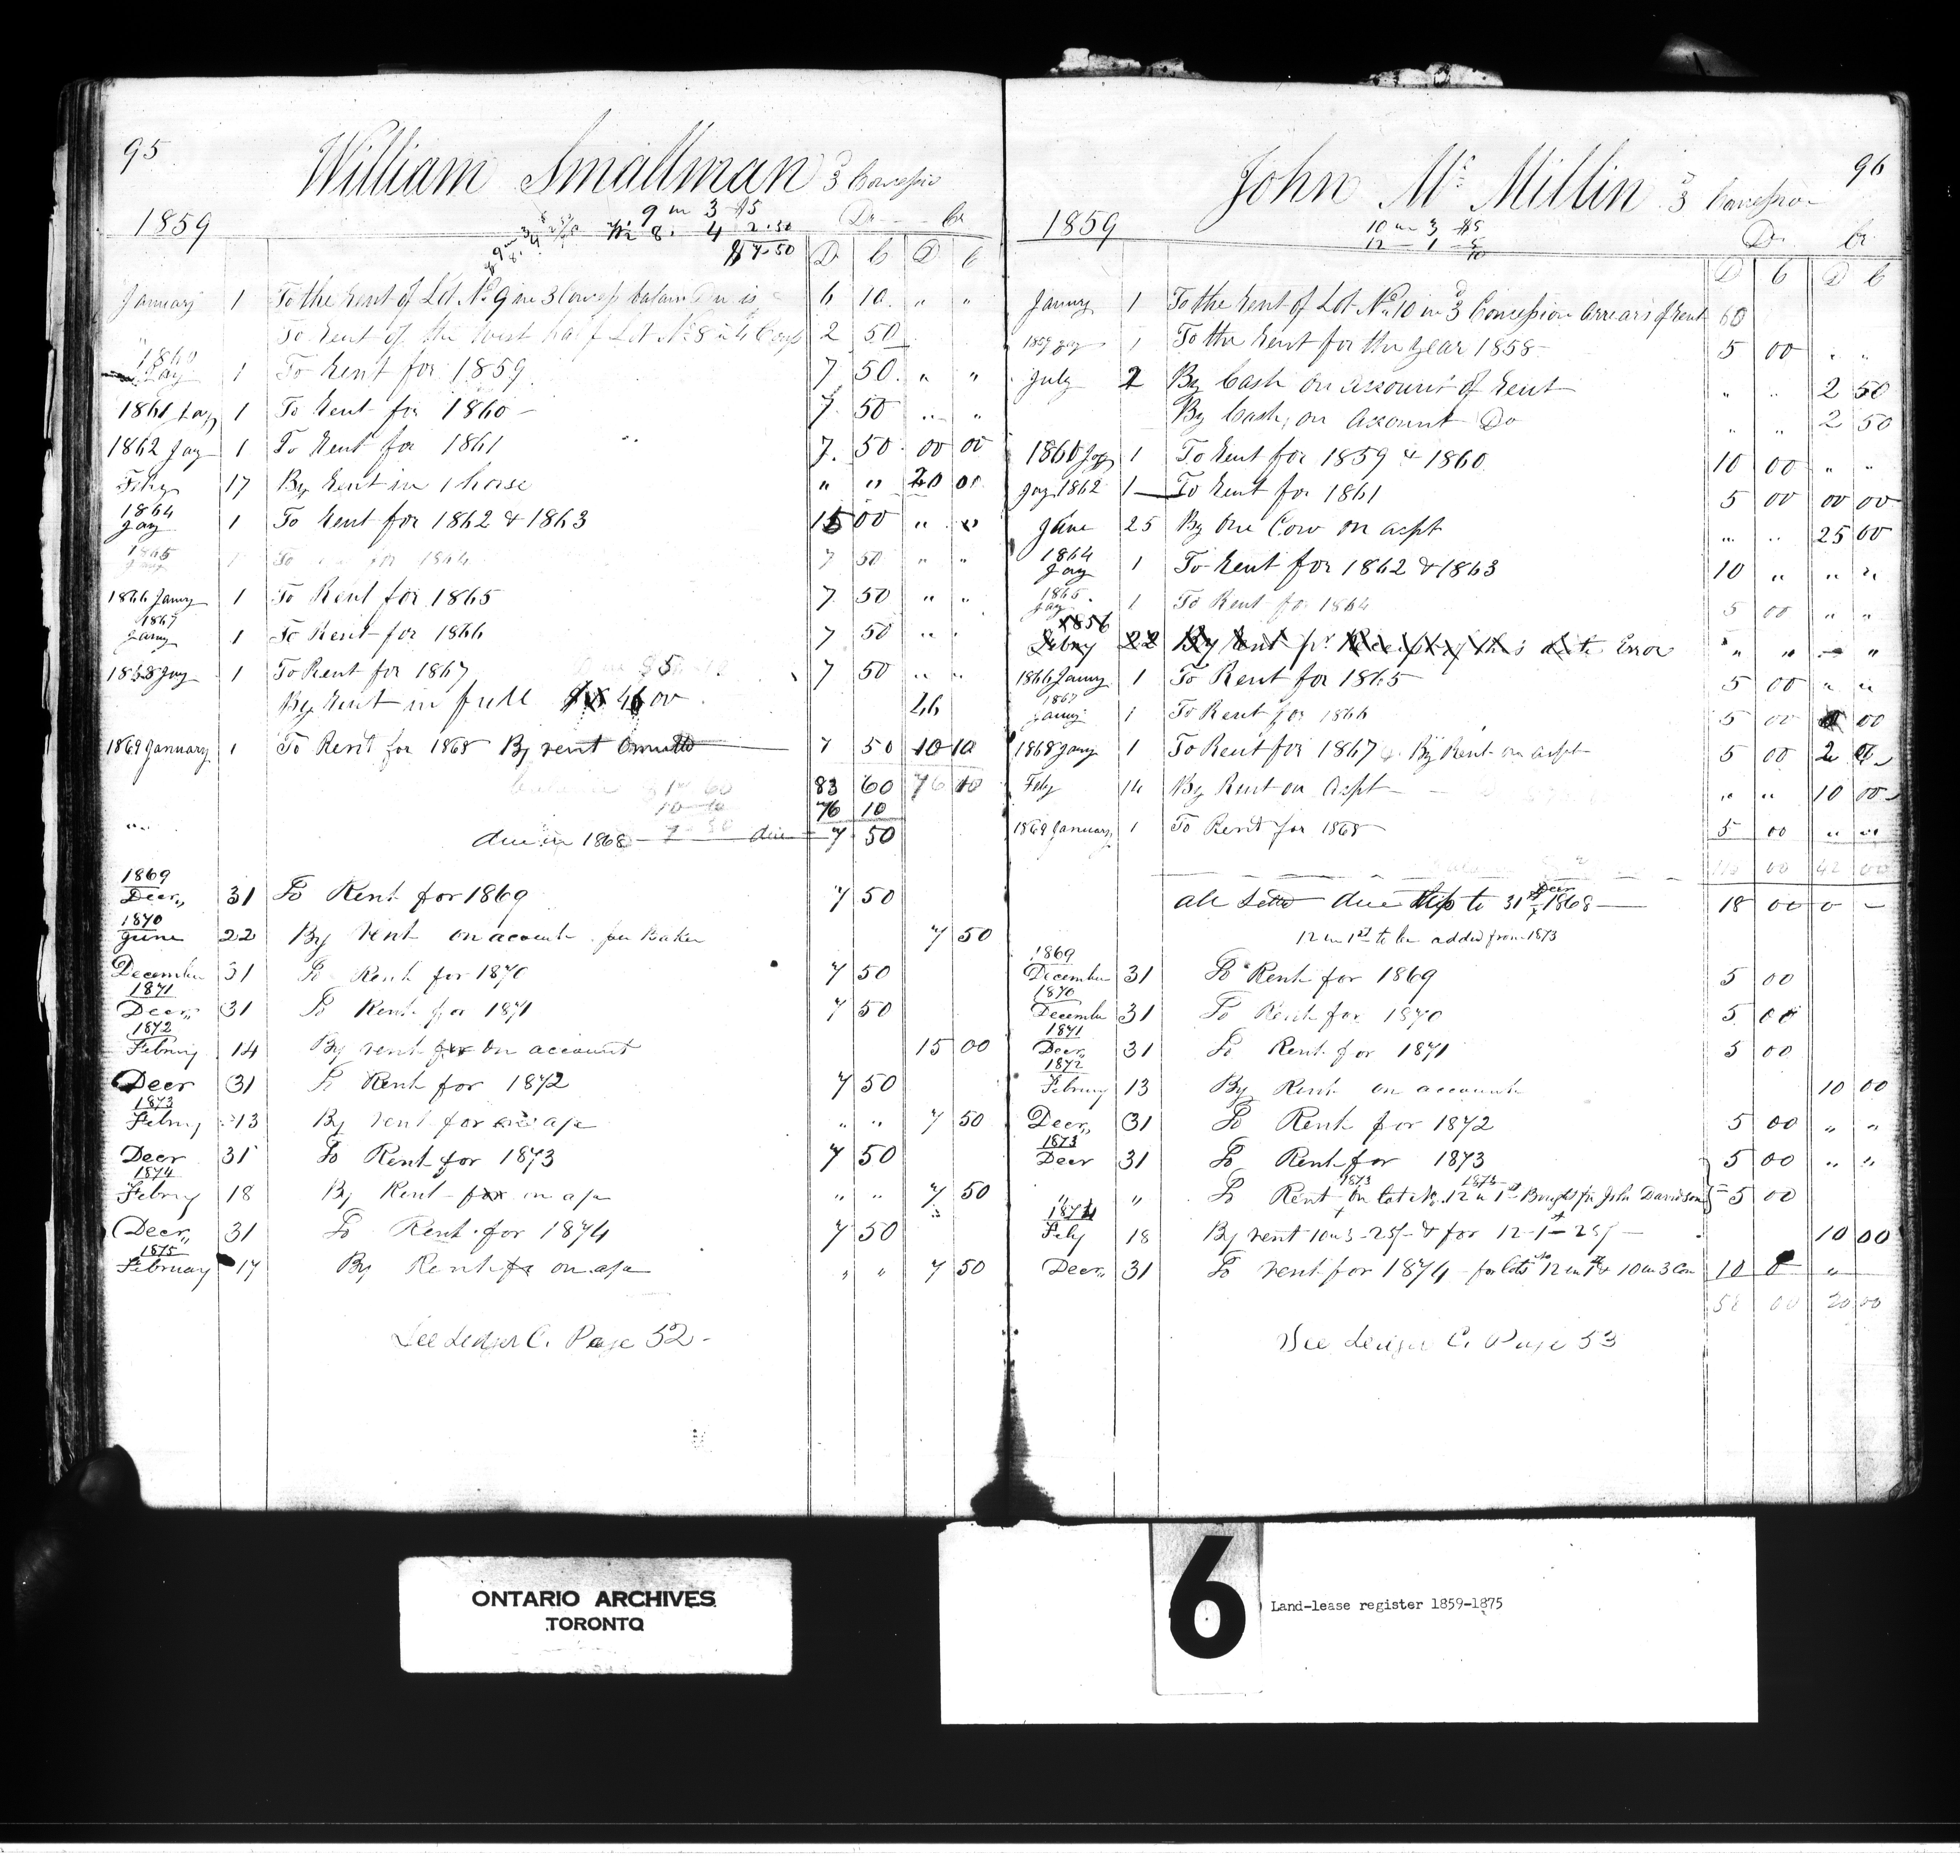 95
William Smallman 3d Concession
1859
9 in 3 $5
W½ 8 . 4 2.50
$7.50
Dr Cr
D C D C
January 1 To the Rent of Lot No 9 in 3 Concess balance Due is 6 10 " "
" To Rent of the West half Lot No 8 in 4 Cons 2 50
1860 Jay 1 To Rent for 1859 7 50 " "
1861 Jay 1 To Rent for 1860 7 50 " "
1862 Jay 1 To Rent for 1861 7 50 00 00
Feby 17 By Rent in 1 horse " " 20 00
1864 Jay 1 To Rent for 1862 & 1863 15 00 " "
1865 1 To 1864 7 50 " "
1866 Janry 1 To Rent for 1865 7 50 " "
1867 Janry 1 To Rent for 1866 7 50 " "
1868 Jay 1 To Rent for 1867 7 50 " "
By Rent in full 46 00 46
1869 January 1 To Rent for 1868 By rent Omitted 7 50 10 10
83 60 76 10
76 10
due in 1868 due 7 50
1869
Decr,, 31 To Rent for 1869 7 50
1870
June 22 By rent on account per Baker 7 50
December 31 To Rent for 1870 7 50
1871
Decr 31 To Rent for 1871 7 50
1872
Febury 14 By rent for on account 15 00
Decr 31 To Rent for 1872 7 50
1873
Febry 13 By rent for on a/c " " 7 50
Decr 31 To Rent for 1873 7 50
1874
Febry 18 By Rent for on a/c " " 7 50
Decr,, 31 To Rent for 1874 7 50
1875
February 17 By Rent for on a/c " " 7 50
See Ledger C. Page 52
96
John Mc Millin 3d Concession
1859
10 in 3 $5
12 - 1 - 5
10
Dr Cr
D C D C
Janury 1 To the Rent of Lot No 10 in 3d Concession Arrears of Rent 60
1859 Jay 1 To the Rent for the Year 1858 5 00 " "
July 2 By Cash on Account of Rent " " 2 50
By Cash, on Account Do " " 2 50
1860 Jay 1 To Rent for 1859 & 1860 10 00 " "
Jay 1862 1 To Rent for 1861 5 00 00 00
June 25 By One Cow on acpt " " 25 00
1864 Jay 1 To Rent for 1862 & 1863 10 " " "
1865 Jay 1 To Rent for 1864 5 00 " "
1856
Febry 22 By Rent pr Receipt this date Error " " " "
1866 Janry 1 To Rent for 1865 5 00 " "
1867 Janry 1 To Rent for 1866 5 00 00
1868 Jany 1 To Rent for 1867 & By Rent on acpt 5 00 2
Feby 14 By Rent on Acpt " " 10 00
1869 January 1 To Rent for 1868 5 00 " "
00 42 00
all due up to 31st Decr 1868 18 00 0
12 in 1st to be added from 1873
1869
December 31 To Rent for 1869 5 00
1870
December 31 To Rent for 1870 5 00
1871
Decr,, 31 To Rent for 1871 5 00
1872
Febuary 13 By Rent on account 10 00
Decr,, 31 To Rent for 1872 5 00 " "
1873
Decr 31 To Rent for 1873 5 00 " "
" " To Rent 1873 on lot No. 12 in 1st Bought fr John Davidson 5 00
1874
Feby 18 By rent 10 in 3 - 25/- & for 12-1st-25/- 10 00
Decr,, 31 To rent for 1874 for lots No 12 in 1st & 10 in 3 Con 10 0 "
58 00 20 00
See Ledger C. Page 53
ONTARIO ARCHIVES
TORONTO
6
Land-lease register 1859-1875